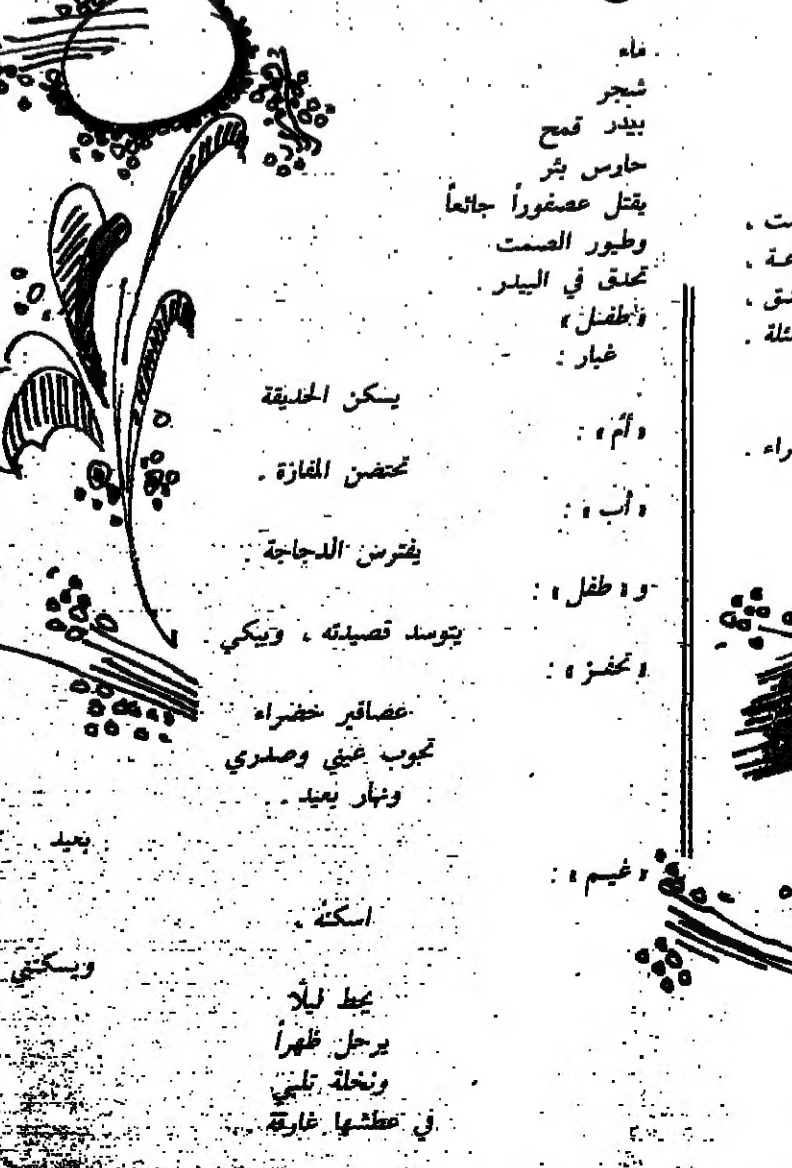 ماء
شجر
بيدر قمح
حارس بئر
يقتل عصفوراً جائعاً
وطيور الصمت
تحدق في البيدر .
« طفل »
غبار :
يسكن الحديقة
« أم » :
تحتضن المفازة .
« أب » :
يفترس الدجاجة .
و « طفل » :
يتوسد قصيدته ، ويبكي
« تحفز » :
عصافير خضراء
تجوب عيني وصدري
ونهار بعيد ..
بعيد .
« غيم » :
اسكنه .
ويسكنني
يحط ليلًا
يرحل ظهراً
ونخلة
في عطشها غارقة ..